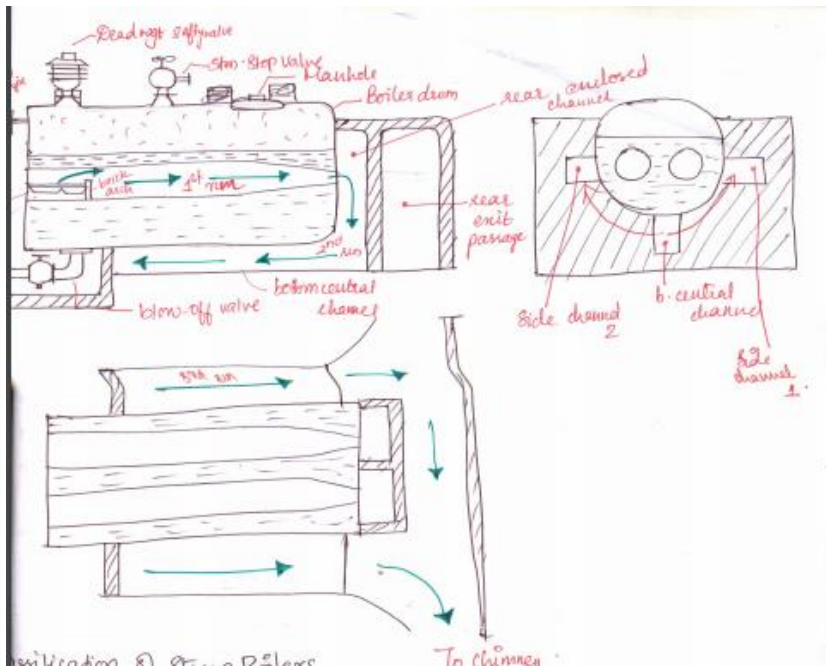 Dead wegt saftyvalve
stm-stop valve
Manhole
Boiler drum
rear enclosed
channel
brick
arch
1st run
rear
exit
passage
2nd
run
bottom central
channel
blow-off valve
side channel
2
b. central
channel
side
channel
1.
3rd run
To chimney